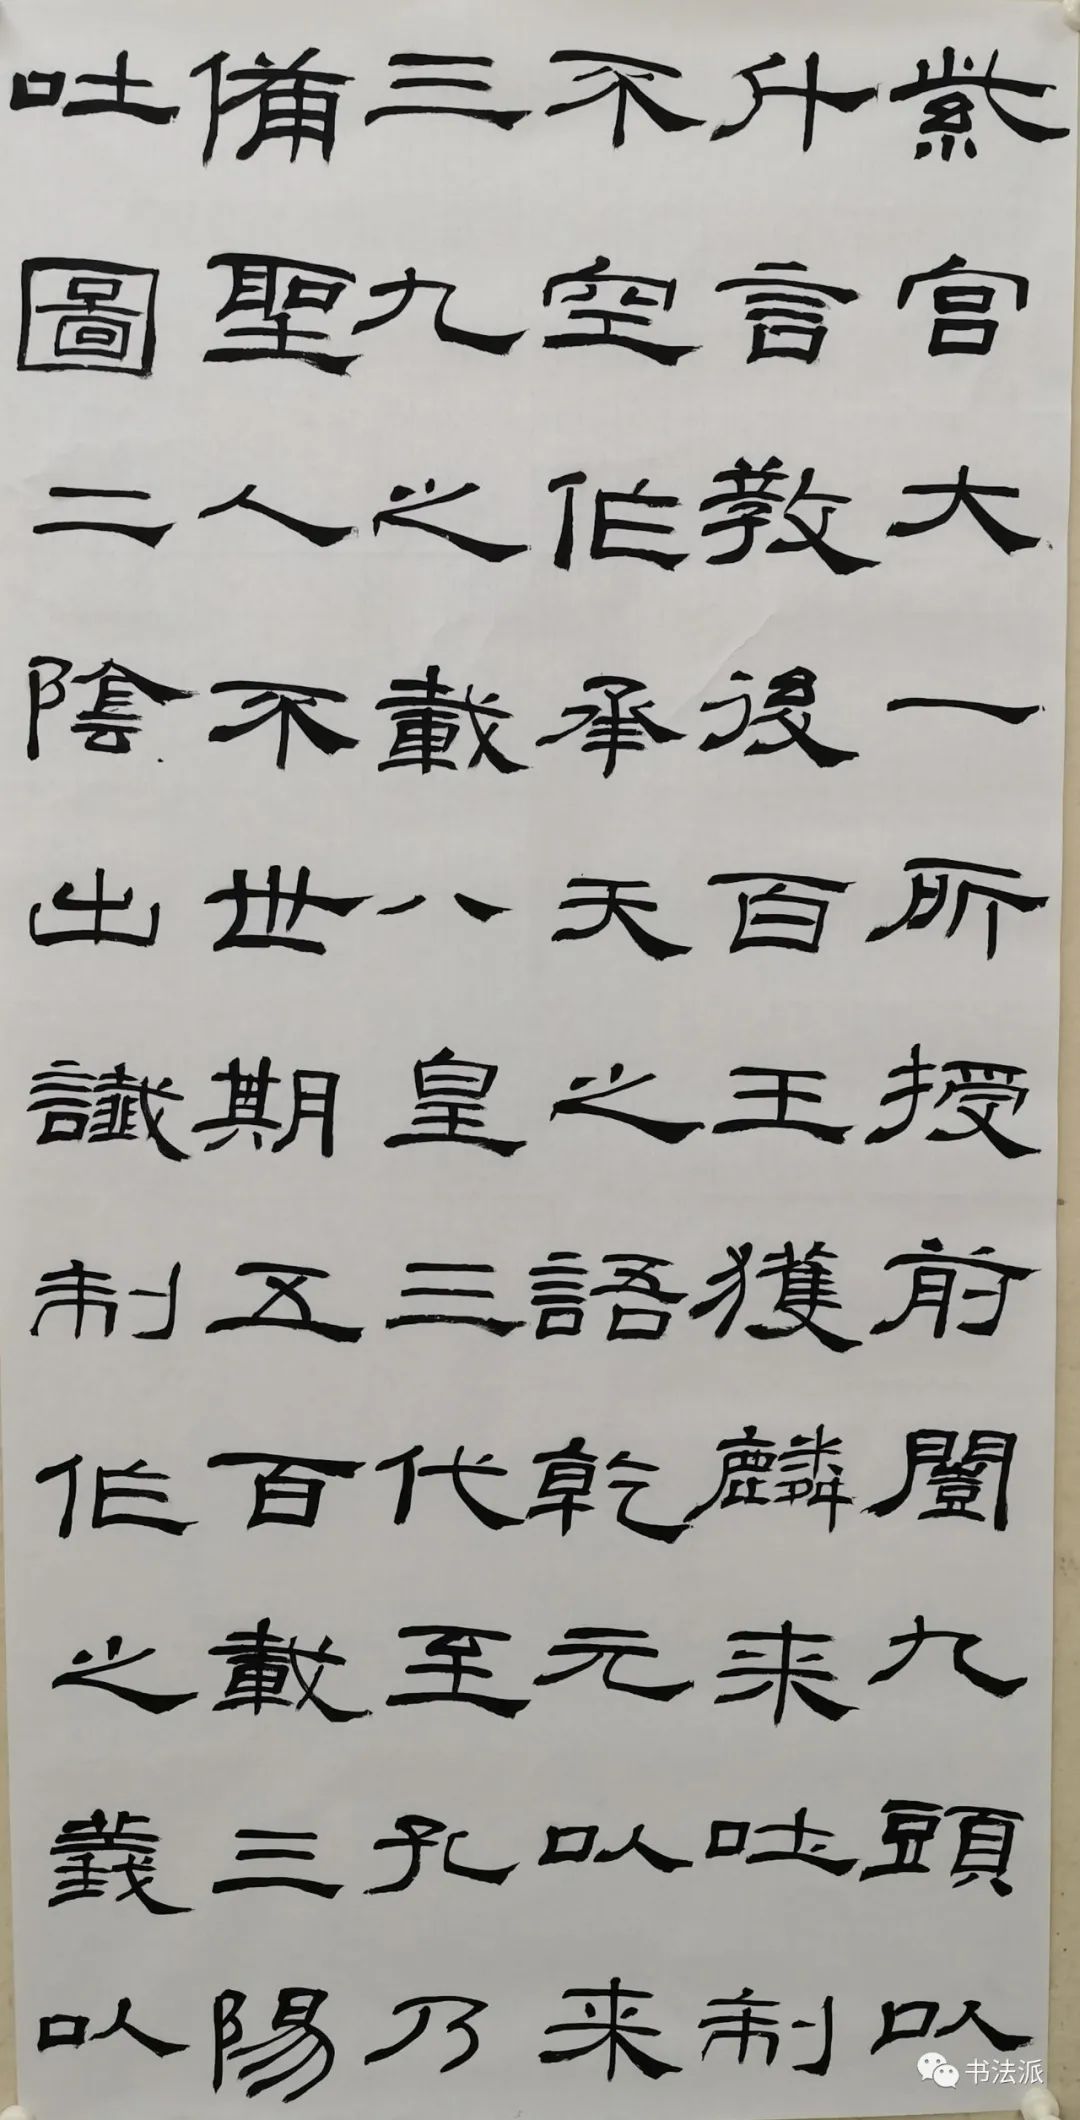 紫宫大一所授前闓九頭以
升言教後百王獲麟来吐制
不空作承天之語乾元以来
三九之載八皇三代至孔乃
備聖人不世期五百載三陽
吐圖二陰出讖制作之義以
书法派